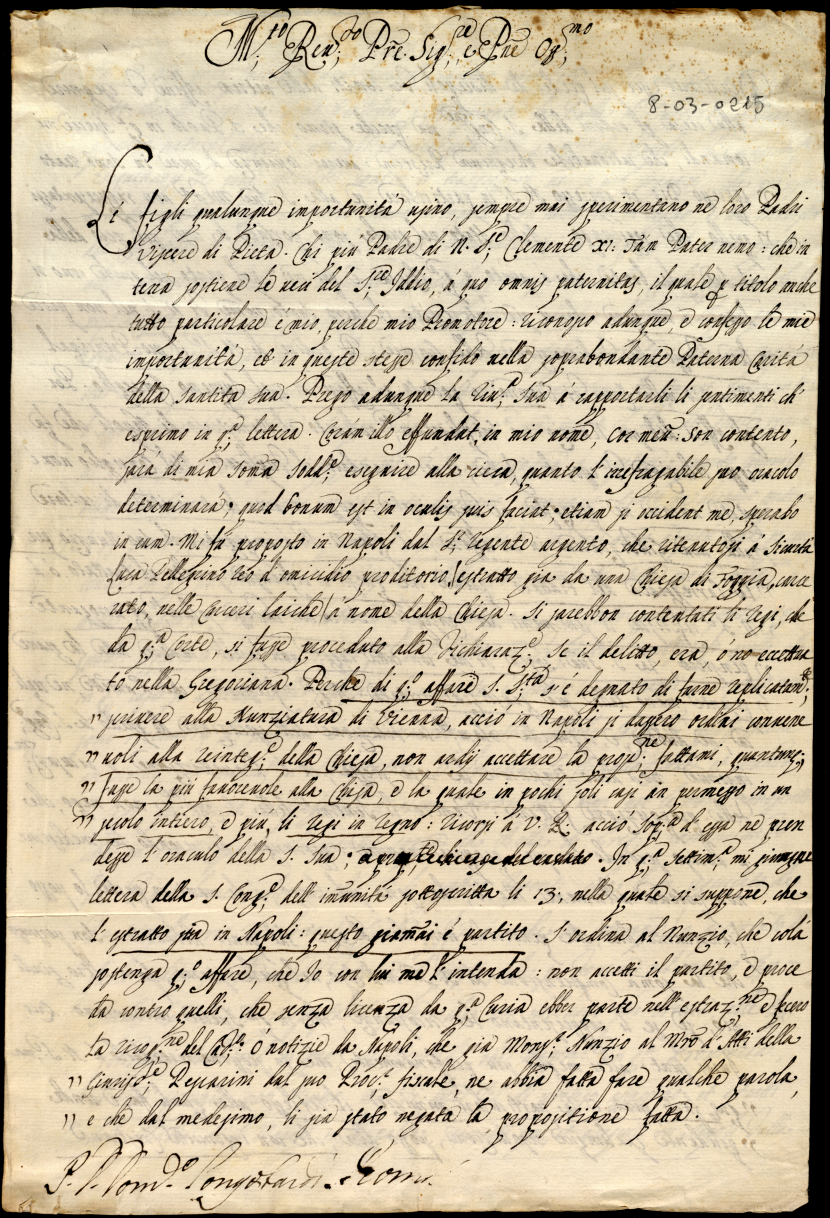 M.to Ren:do Pre Sig:re e Pne Oss:mo
8-03-0215
Li figli qualunque importunità usino, sempre mai sperimentano ne loro Padri
viscere di Pietà. Chi più Padre di N. S.e Clemente XI: Tam Pater nemo: che in
terra sostiene le veci del S:re Iddio, à quo omnis paternitas, il quale p titolo anche
tutto particolare é mio, perche mio Promotore: riconosco adunque, e confesso le mie
importunità, et in queste stesse confido nella soprabondante Paterna Carità
della Santità Sua. Prego adunque la Riv:a Sua à rapportarli li sentimenti ch'
esprimo in q:a lettera. Coram illo effundat, in mio nome, cor meum: son contento,
sarà di mia somma sodd:e eseguire alla cieca, quanto l'irrefragabile suo oracolo
determinarà; quod bonum est in oculis suis faciat; etiam si occiderit me, sperabo
in eum. Mi fu proposto in Napoli dal S:r Regente Argento, che ritenutosi à
Luca Pellegrino reo d'omicidio proditorio, estratto già da una Chiesa di Foggia, carce
rato, nelle carceri laiche à nome della Chiesa. Si sarebbon contentati li Regi, che
da q:a Corte, si fusse proceduto alla Dichiaraz:e se il delitto, era, ó no eccettua
tò nella Gregoriana. Perche di q:o affare S. S:tà s'é degnato di farne replicatam:te
" scrivere alla Nunziatura di Vienna, acciò in Napoli si dassero ordini conuene
" uoli alla reinteg:e della Chiesa, non ardij accettare la propos:ne fattami, quantunq;
" fusse la più fauoreuole alla Chiesa, e la quale in pochi soli casi an permesso in un
" secolo intiero, e più, li Regi in regno: ricorsi à V. R. acciò sop:a d'essa ne pren
desse l'oraculo della S. Sua; In q:a settim:a mi giunse
lettera della S. Cong:e dell'imunità sottoscritta li 13, nella quale si suppone, che
l'estratto sia in Napoli: questo giamai é partito. S'ordina al Nunzio, che colà
sostenga q:o affare, che Io con lui me l'intenda: non accetti il partito, e proce
da contro quelli, che senza licenza da q:a Curia ebber parte nell'estraz:ne e fecero
la ricog:ne del ó notizie da Napoli, che già Mons:r Nunzio al Mro d'Atti della
" Giurisd:e Pescarini dal suo Proc:r fiscale, ne abbia fatta fare qualche parola,
" e che dal medesimo, li sia stato negata la propositione fatta.
P. Longobardi. Roma